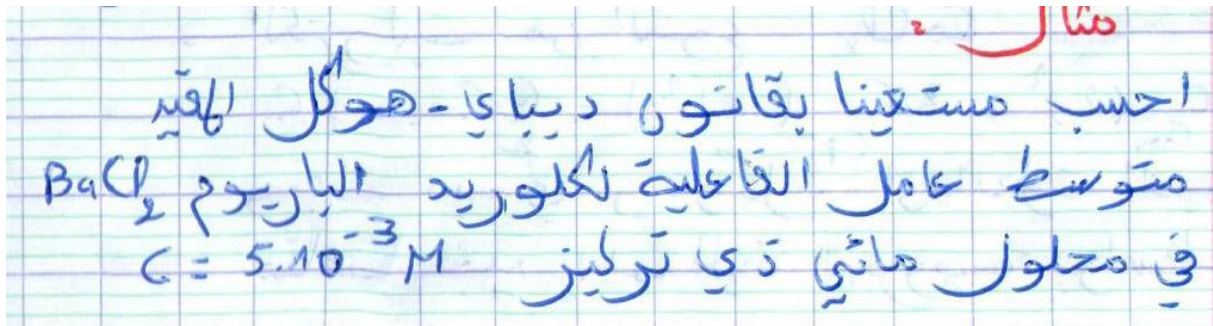 مثال :
احسب مستعينا بقانون ديباي - هوكل المقيد
متوسط عامل الفاعلية لكلوريد الباريوم BaCl₂
في محلول مائي ذي تركيز C = 5.10⁻³ M